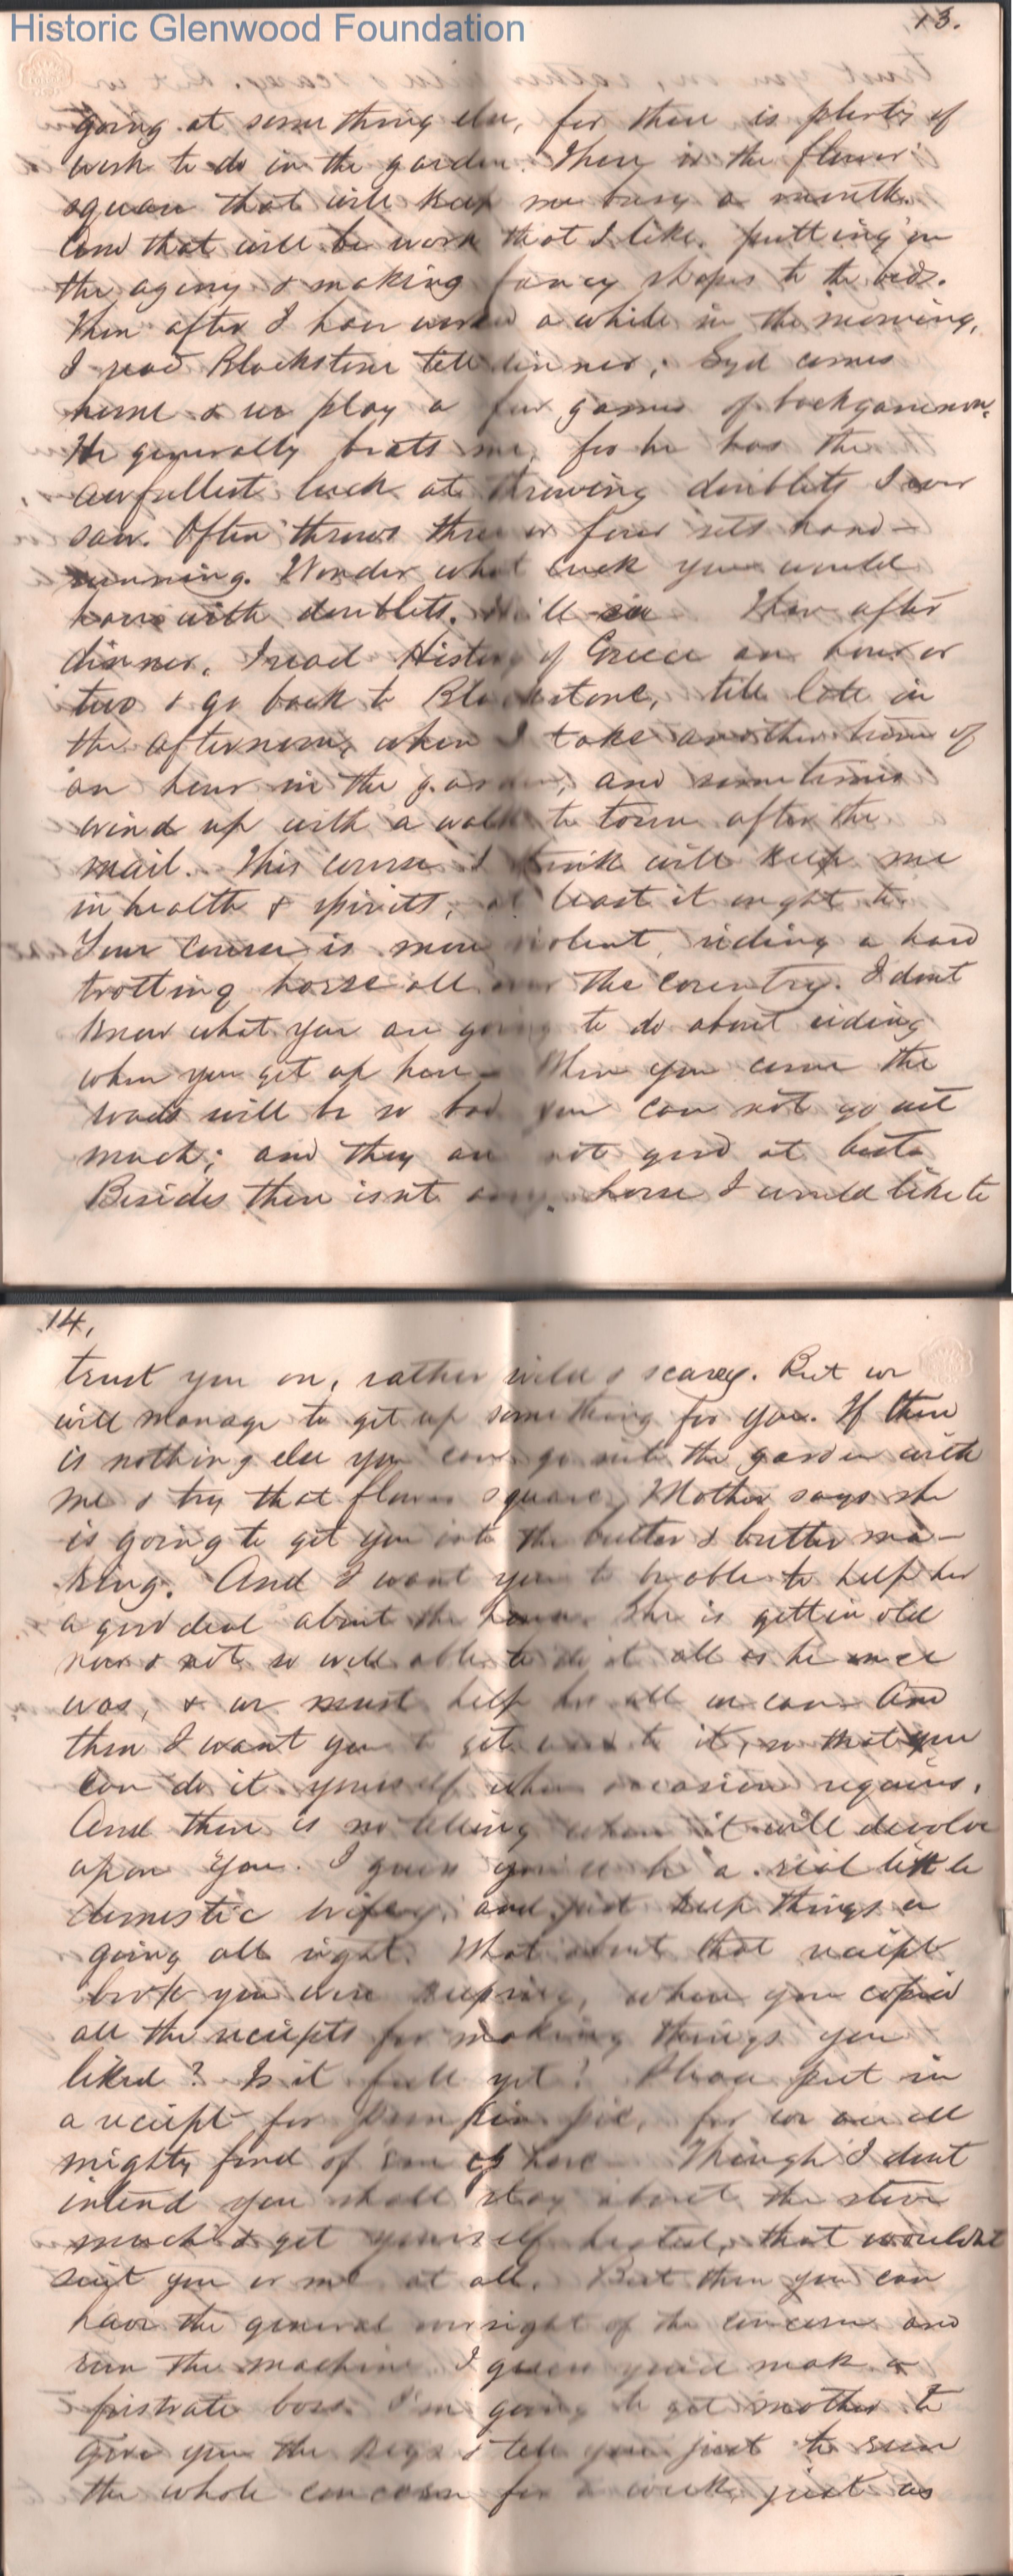 Historic Glenwood Foundation
13.
going at something else, for there is plenty of
work to do in the garden. There is the flower
square that will keep me busy a month.
And that will be work that I like, putting in
the & making fancy shapes to the beds.
Then after I have worked a while in the morning,
I read Blackstone till dinner; Syd comes
home & we play a few games of backgammon.
He generally beats me, for he has the
awfullest luck at throwing doublets I ever
saw. Often throws three or four sets hand-
running. Wonder what luck you would
have with doublets. Will see Then after
dinner, I read History of Greece an hour or
two & go back to Blackstone, till late in
the afternoon, when I take another turn of
an hour in the garden, and sometimes
wind up with a walk to town after the
mail. This course I think will keep me
in health & spirits, at least it ought to.
Your course is more violent, riding a hard
trotting horse all over the country. I dont
know what you are going to do about riding
when you get up here – When you come the
roads will be so bad you can not go out
much; and they are not good at best.
Besides there isnt any horse I would like to
14,
trust you on, rather wild & scarey. But we
will manage to get up something for you. If there
is nothing else you can go into the garden with
me & try that flower square. Mother says she
is going to get you into the butter & butter ma-
king. And I want you to be able to help her
a good deal about the house. She is gettin old
now & not so well able to do it all as he once
was, & we must help her all we can. And
then I want you to get used to it, so that you
can do it yourself when occasion requires.
And there is no telling when it will devolve
upon you. I guess you'll be a real little
domestic wifey, and just keep things a
going all right. What about that receipt
book you were keeping, where you copied
all the receipts for making things you
liked? Is it full yet? Please put in
a receipt for pumpkin pie, for we are all
mighty fond of 'em up here – Though I dont
intend you shall stay about the stove
much & get yourself heated, that wouldnt
suit you or me at all. But then you can
have the general oversight of the concern and
run the machine. I guess you'd mak a
fristrate boss. I'm going to get mother to
give you the keys & tell you just to run
the whole concern for a week, just as